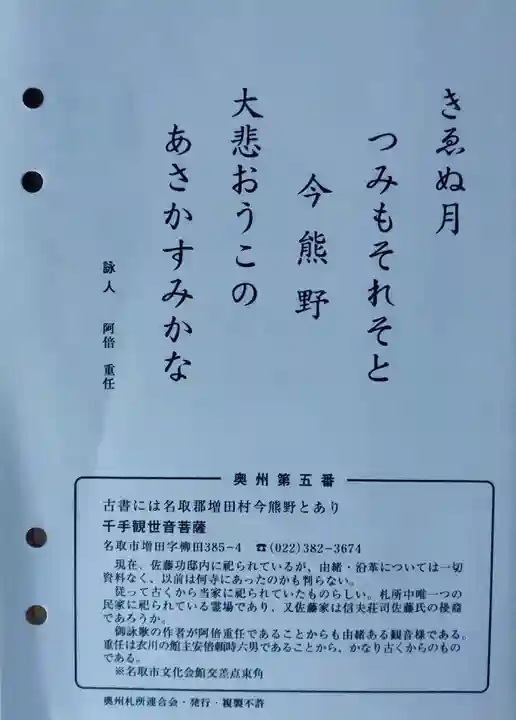 きゑぬ月
つみもそれそと
今熊野
大悲おうこの
あさかすみかな
詠人　阿倍　重任
奥州第五番
古書には名取郡増田村今熊野とあり
千手観世音菩薩
名取市増田字柳田385-4　☎(022)382-3674
現在、佐藤功邸内に祀られているが、由緒・沿革については一切
資料なく、以前は何寺にあったのかも判らない。
従って古くから当家に祀られていたものらしい。札所中唯一つの
民家に祀られている霊場であり、又佐藤家は信夫荘司佐藤氏の後裔
であろうか。
御詠歌の作者が阿倍重任であることからも由緒ある観音様である。
重任は衣川の館主安倍頼時六男であることから、かなり古くからのもの
である。
※名取市文化会館交差点東角
奥州札所連合会・発行・複製不許